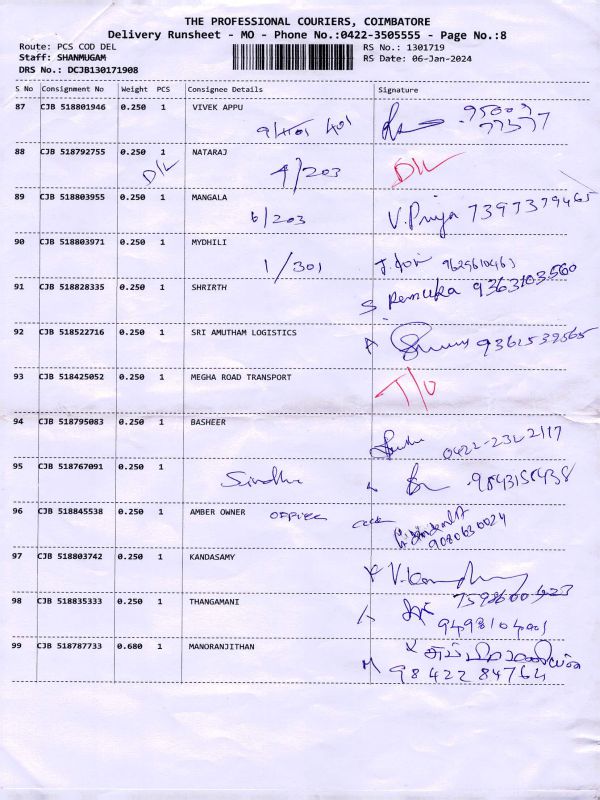 THE PROFESSIONAL COURIERS, COIMBATORE
Delivery Runsheet - MO - Phone No.:0422-3505555 - Page No.:8
Route: PCS COD DEL RS No.: 1301719
Staff: SHANMUGAM RS Date: 06-Jan-2024
DRS No.: DCJB130171908
S No Consignment No Weight PCS Consignee Details Signature
87 CJB 518801946 0.250 1 VIVEK APPU
401
88 CJB 518792755 0.250 1 NATARAJ
D/L 4/203 D/L
89 CJB 518803955 0.250 1 MANGALA
6/203 V. Priya 7397379465
90 CJB 518803971 0.250 1 MYDHILI
1/301
91 CJB 518828335 0.250 1 SHRIRTH
S Remuka 9363103560
92 CJB 518522716 0.250 1 SRI AMUTHAM LOGISTICS
9362532565
93 CJB 518425052 0.250 1 MEGHA ROAD TRANSPORT
94 CJB 518795083 0.250 1 BASHEER
0422-2322117
95 CJB 518767091 0.250 1
Sindhu 9843158438
96 CJB 518845538 0.250 1 AMBER OWNER OFFICE
9080630024
97 CJB 518803742 0.250 1 KANDASAMY
98 CJB 518835333 0.250 1 THANGAMANI
99 CJB 518787733 0.680 1 MANORANJITHAN
98422 84764